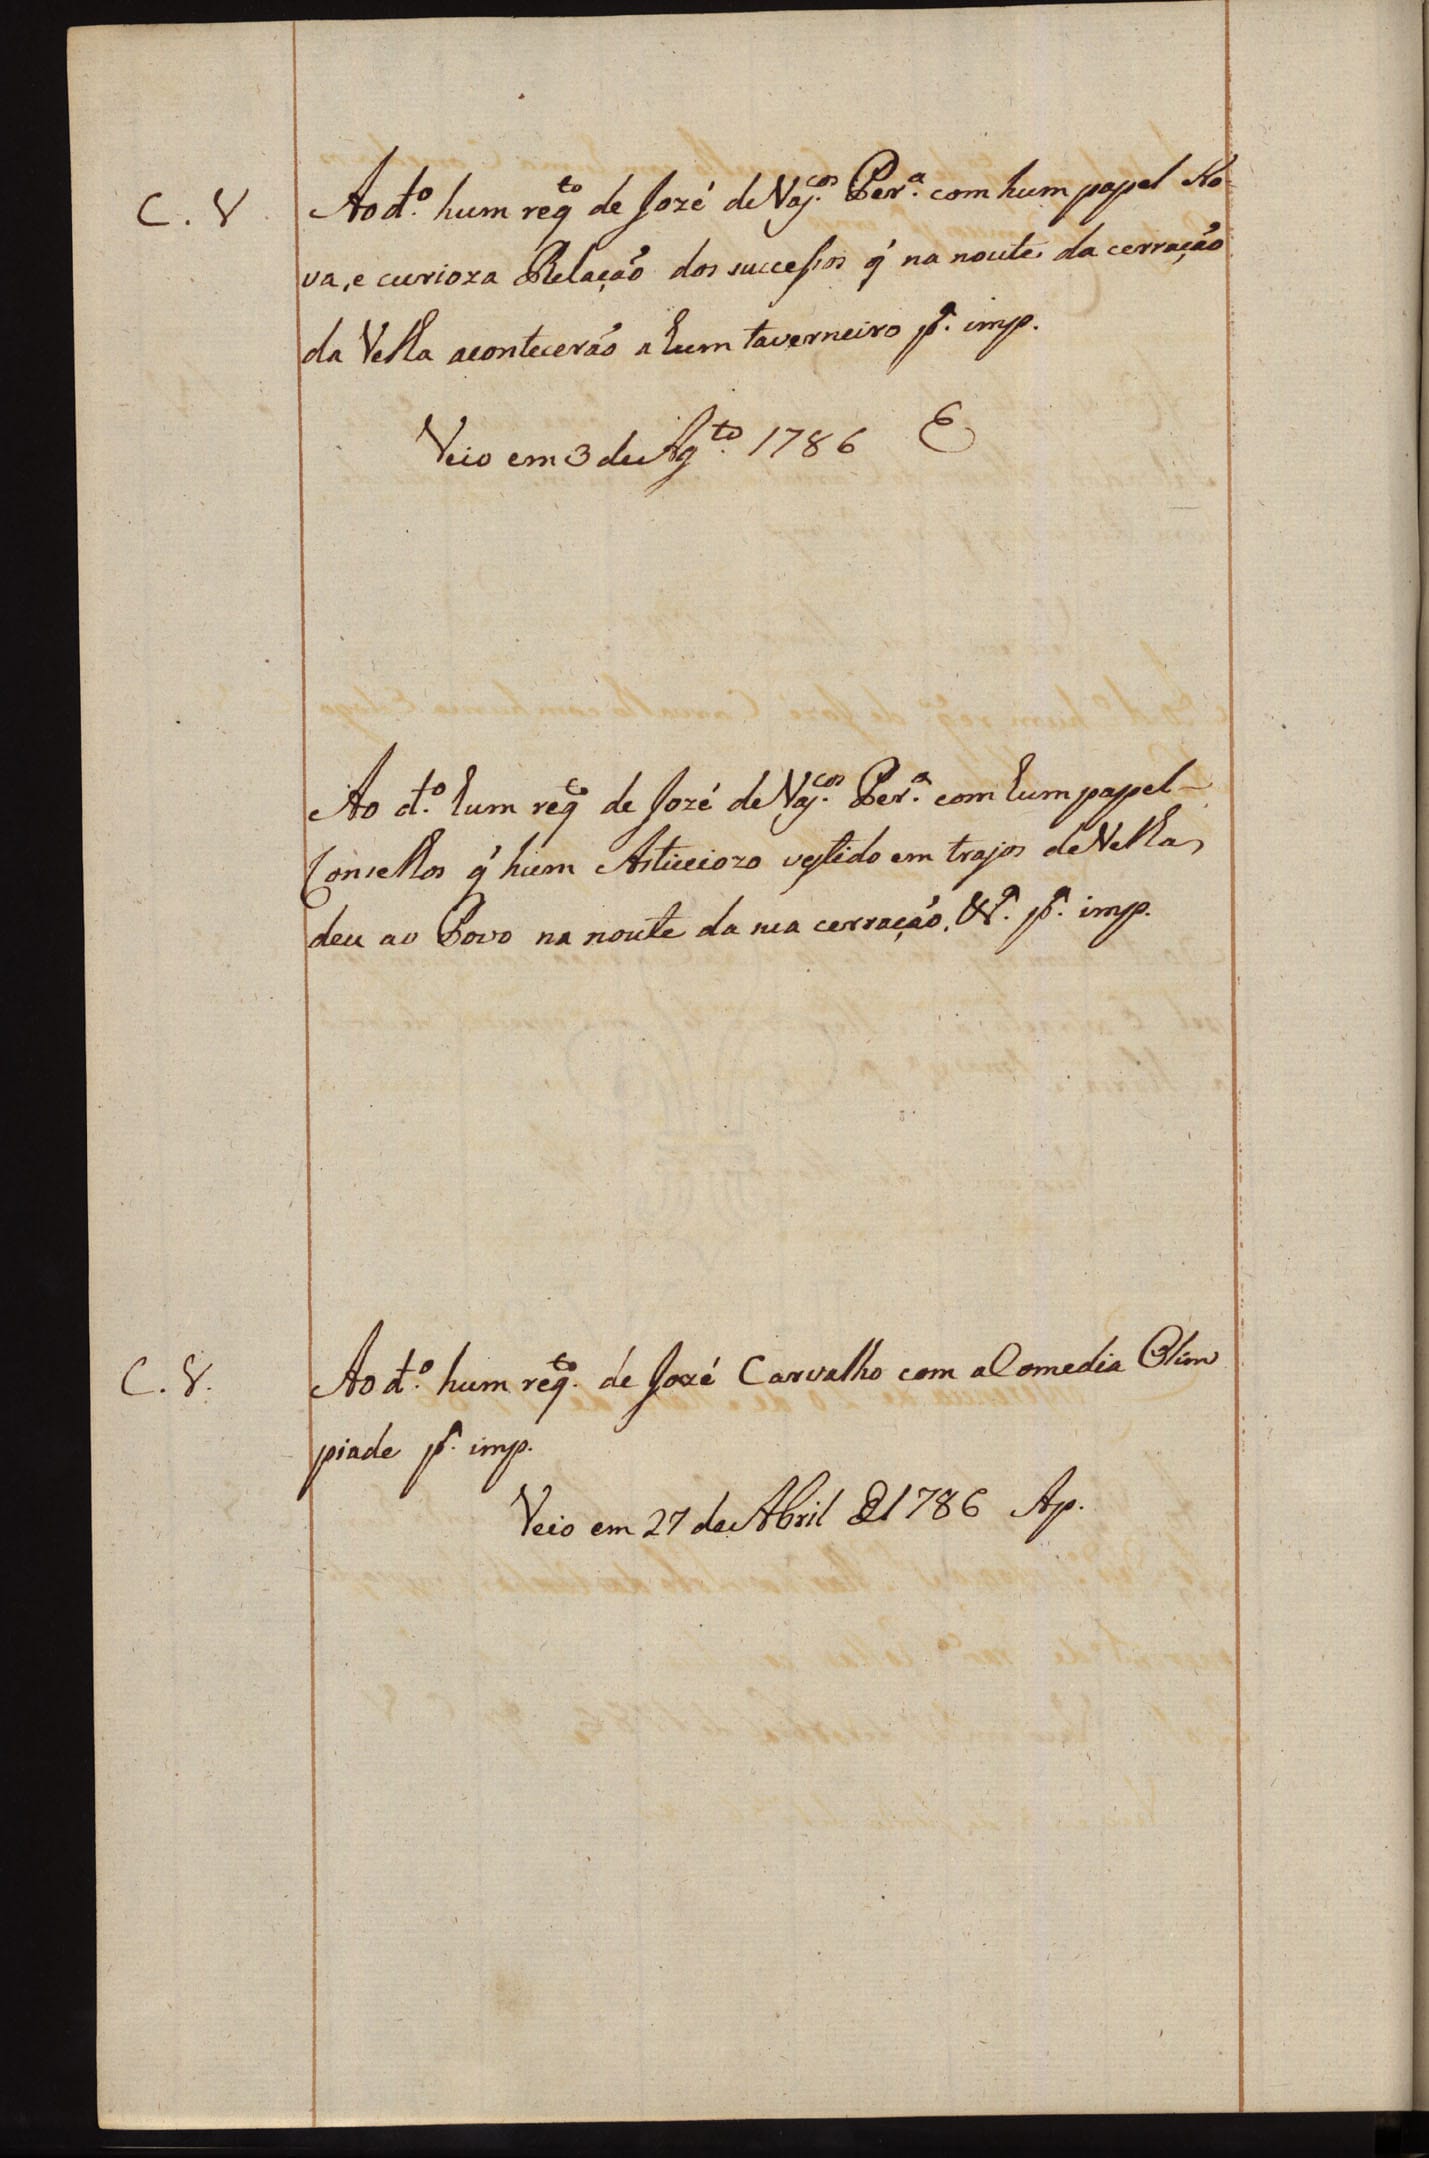 C. V. Ao d.º hum reqto de Jozé de Vas.cos Per.ª com hum papel No
va, e curioza Relação dos successos q' na noute da cerração
da Velha acontecerão a hum taverneiro pª. imp.
Veio em 3 de Ag.to 1786 E
Ao d.º hum reqto de Jozé de Vas.cos Per.ª com hum papel –
Conselhos q' hum Astuciozo vestido em trajos de Velha
deu ao Povo na noute da sua cerração, &ª. pª. imp.
C. V. Ao d.º hum reqto. de Jozé Carvalho com a Comedia Olim
piade pª. imp.
Veio em 27 de Abril d 1786 Ap.